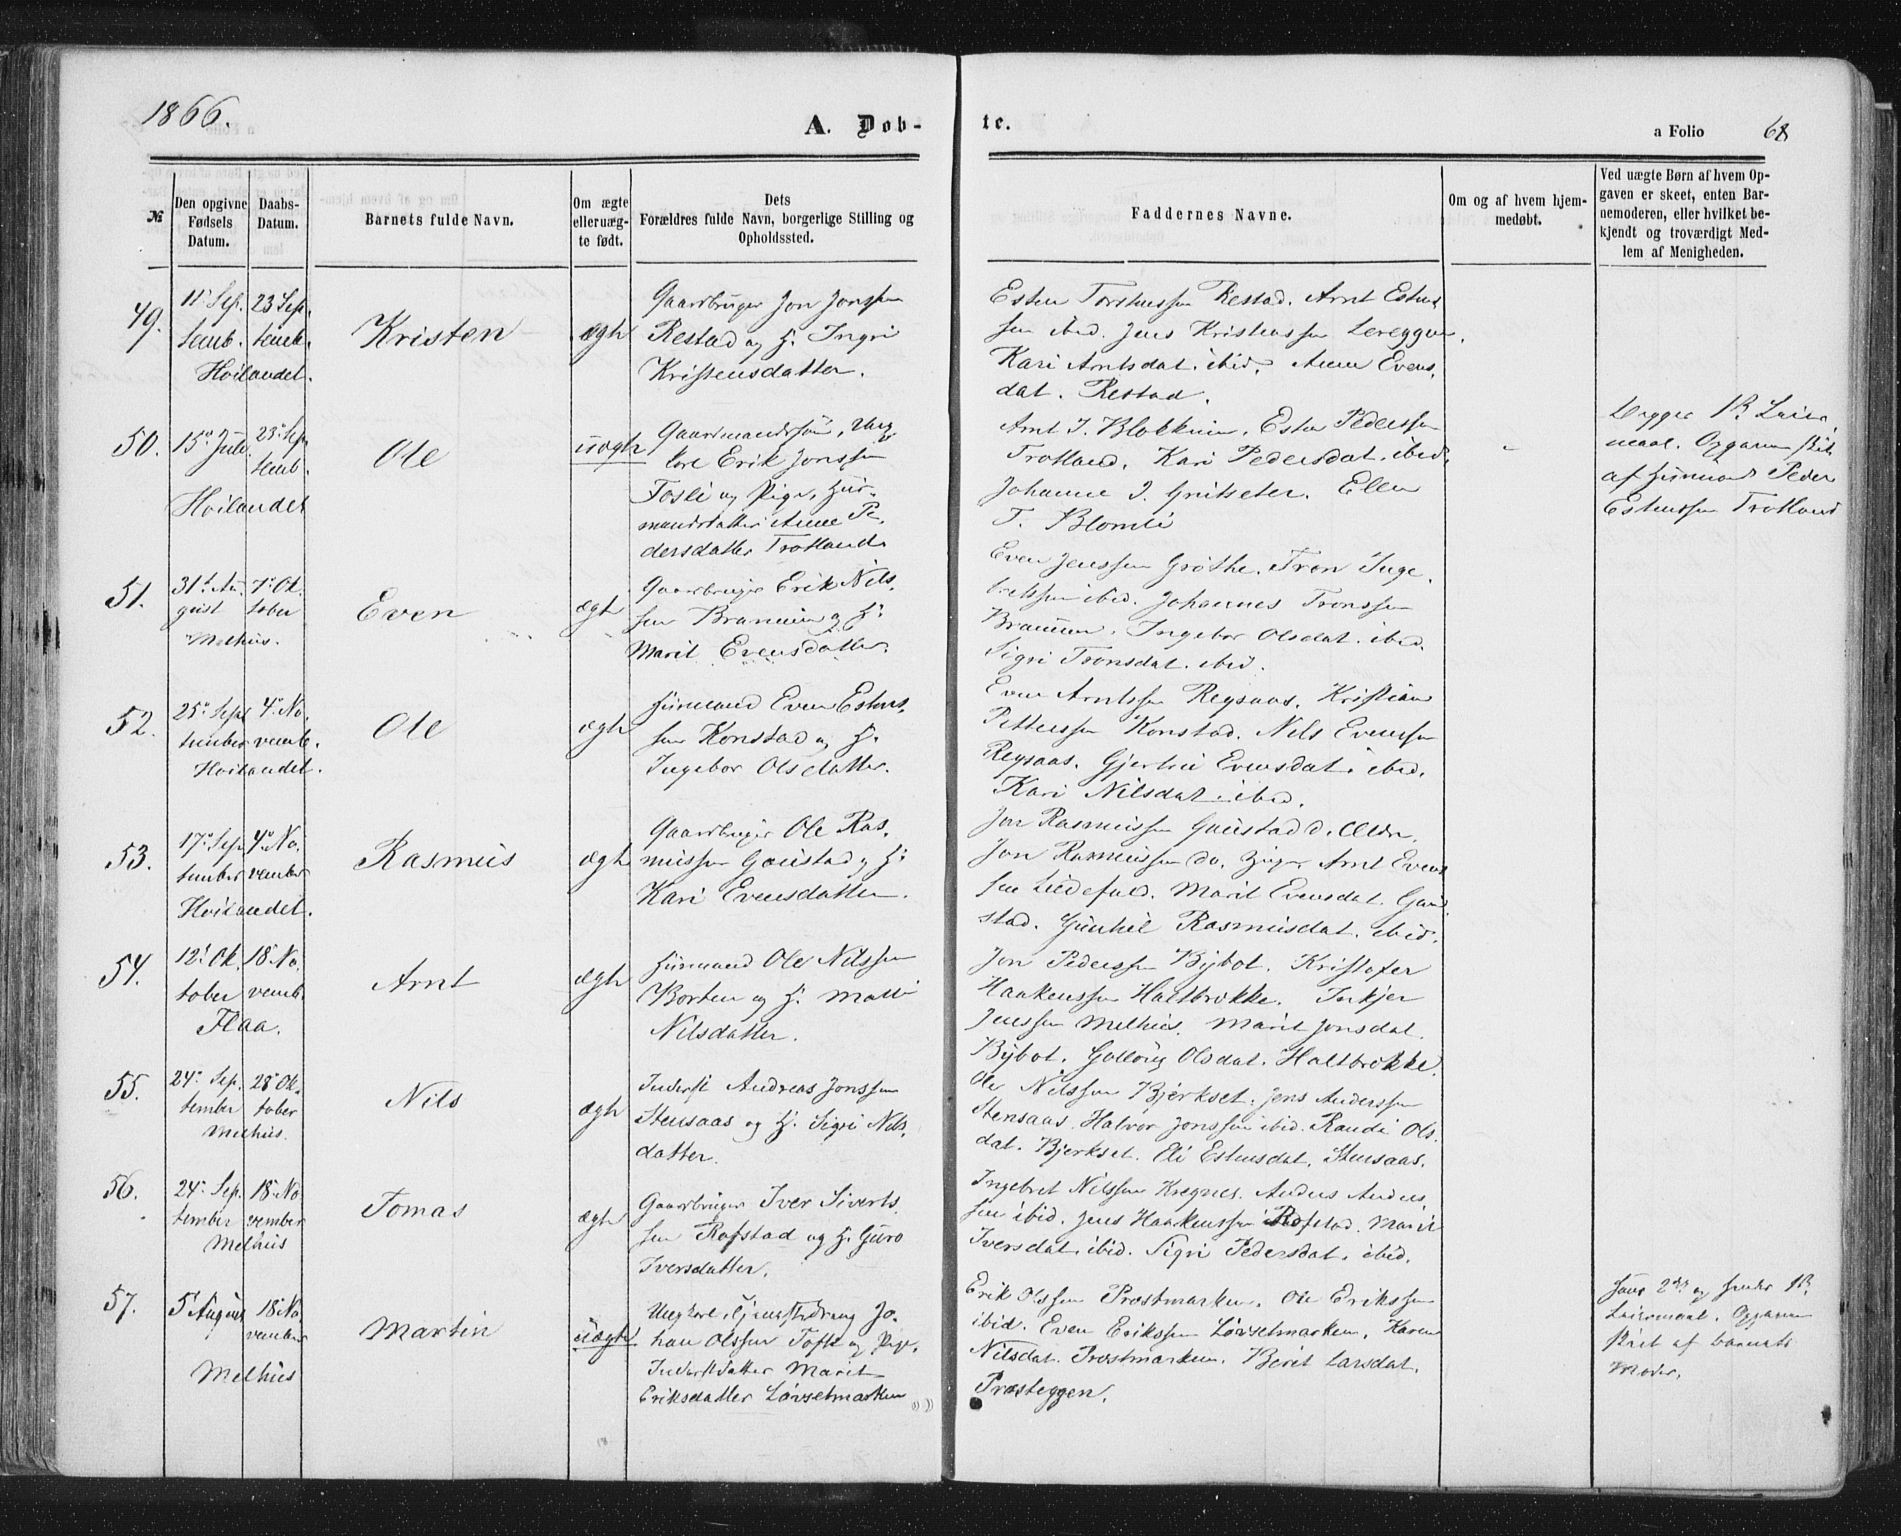 1866.
A. Døb-
te.
a Folio 68
№
Den opgivne
Fødsels
Datum.
Daabs-
Datum.
Barnets fulde Navn.
Om ægte
elleruæg-
te født.
Dets
Forældres fulde Navn, borgerlige Stilling og
Opholdssted.
Faddernes Navne.
Om og af hvem hjem-
medøbt.
Ved uægte Børn af hvem Op-
gaven er skeet, enten Bar-
nemoderen, eller hvilket be-
kjendt og troværdigt Med-
lem af Menigheden.
49.
11' Sep.
temb.
23 Sep.
temb.
Høilandet.
Kristen
ægte
Gaardbruger Jon Jonssen
Restad og H. Ingri
Kristensdatter.
Esten Torstenssen Restad. Arnt Estens
sen ibid. Jens Kristenssen Lereggen.
Kari Arntsdat. ibid. Anne Evens.
dat. Restad.
50.
15' Juli
23' Sep
temb.
Høilandet
Ole
uægte
Gaardmandssøn, Ung
karl Erik Jonssen
Fosli og Pige, Hus-
mandsdatter Anne Pe
dersdatter Trotland
Arnt J. Blokkum. Esten Pederssen
Trotland. Kari Pedersdat. ibid.
Johanne J. Gritseter. Ellen
T. Blomli
Begges 1ste Leier
maal. Opgaven sket
af Husmand Peder
Estenssen Trotland
51.
31' Au.
gust
7' Ok.
tober
Melhus.
Even
ægte
Gaardbruger Erik Nils.
sen Bramun og H.
Marit Evensdatter.
Even Jenssen Grøthe. Tron Inge.
bretssen ibid. Johannes Tronssen
Bramun. Ingebor Olsdat. ibid.
Sigri Tronsdat. ibid.
52.
25' Sep
tember
4' No.
vemb.
Høilandet.
Ole
ægte
Husmand Even Estens.
sen Konstad og H.
Ingebor Olsdatter.
Even Arntssen Regsaas. Kristian
Petterssen Konstad. Nils Evenssen
Regsaas. Gjertrü Evensdat. ibid.
Kari Nilsdat. ibid.
53.
17' Sep
tember
4' No.
vember
Høilandet.
Rasmus
ægte
Gaardbruger Ole Ras.
mussen Gaustad og H.
Kari Evensdatter.
Jon Rasmussen Gaustad d. Ældre.
Jon Rasmussen do. Yngre. Arnt Evens
sen Lidefald. Marit Evensdat. Gau
stad. Gunhil Rasmusdat. ibid.
54.
12' Ok.
tober
18' No.
vemb.
Flaa.
Arnt
ægte
Husmand Ole Nilssen
Borten og H. Matti
Nilsdatter.
Jon Pederssen Bybot. Kristofer
Haakenssen Haltbrekke. Inkjer
Jenssen Melhus. Marit Jonsdat.
Bybot. Gollaug Olsdat. Haltbrekke.
55.
24' Sep.
tember
28' Ok.
tober
Melhus.
Nils
ægte
Inderst Andreas Jonssen
Stensaas og H. Sigri Nils.
datter.
Ole Nilssen Bjerkset. Jens Anderssen
Stensaas. Halvor Jonssen ibid. Randi Ols.
dat. Bjerkset. Eli Estensdat. Stensaas.
56.
24' Sep.
tember
18' No
vember
Melhus
Tomas
ægte
Gaardbruger Iver Siverts.
sen Rofstad og H. Guro
Iversdatter.
Ingebret Nilssen Kregnes. Anders Anders.
sen ibid. Jens Haakenssen Rofstad. Marit
Iversdat. ibid. Sigri Pedersdat. ibid.
57.
5 August
18' No
vember
Melhus
Martin
uægte
Ungkarl, Tjenestedreng Jo.
han Olssen Tofte og Pige,
Inderstdatter Marit
Eriksdatter Løvsetmarken
Erik Olssen Prestmarken. Ole Erikssen
ibid. Even Erikssen Løvsetmarken. Karen
Nilsdat. Prestmarken. Berit Larsdat.
Præsteggen.
Hans 2det og hendes 1ste
Leiermaal. Opgaven
sket af Barnets
Moder.